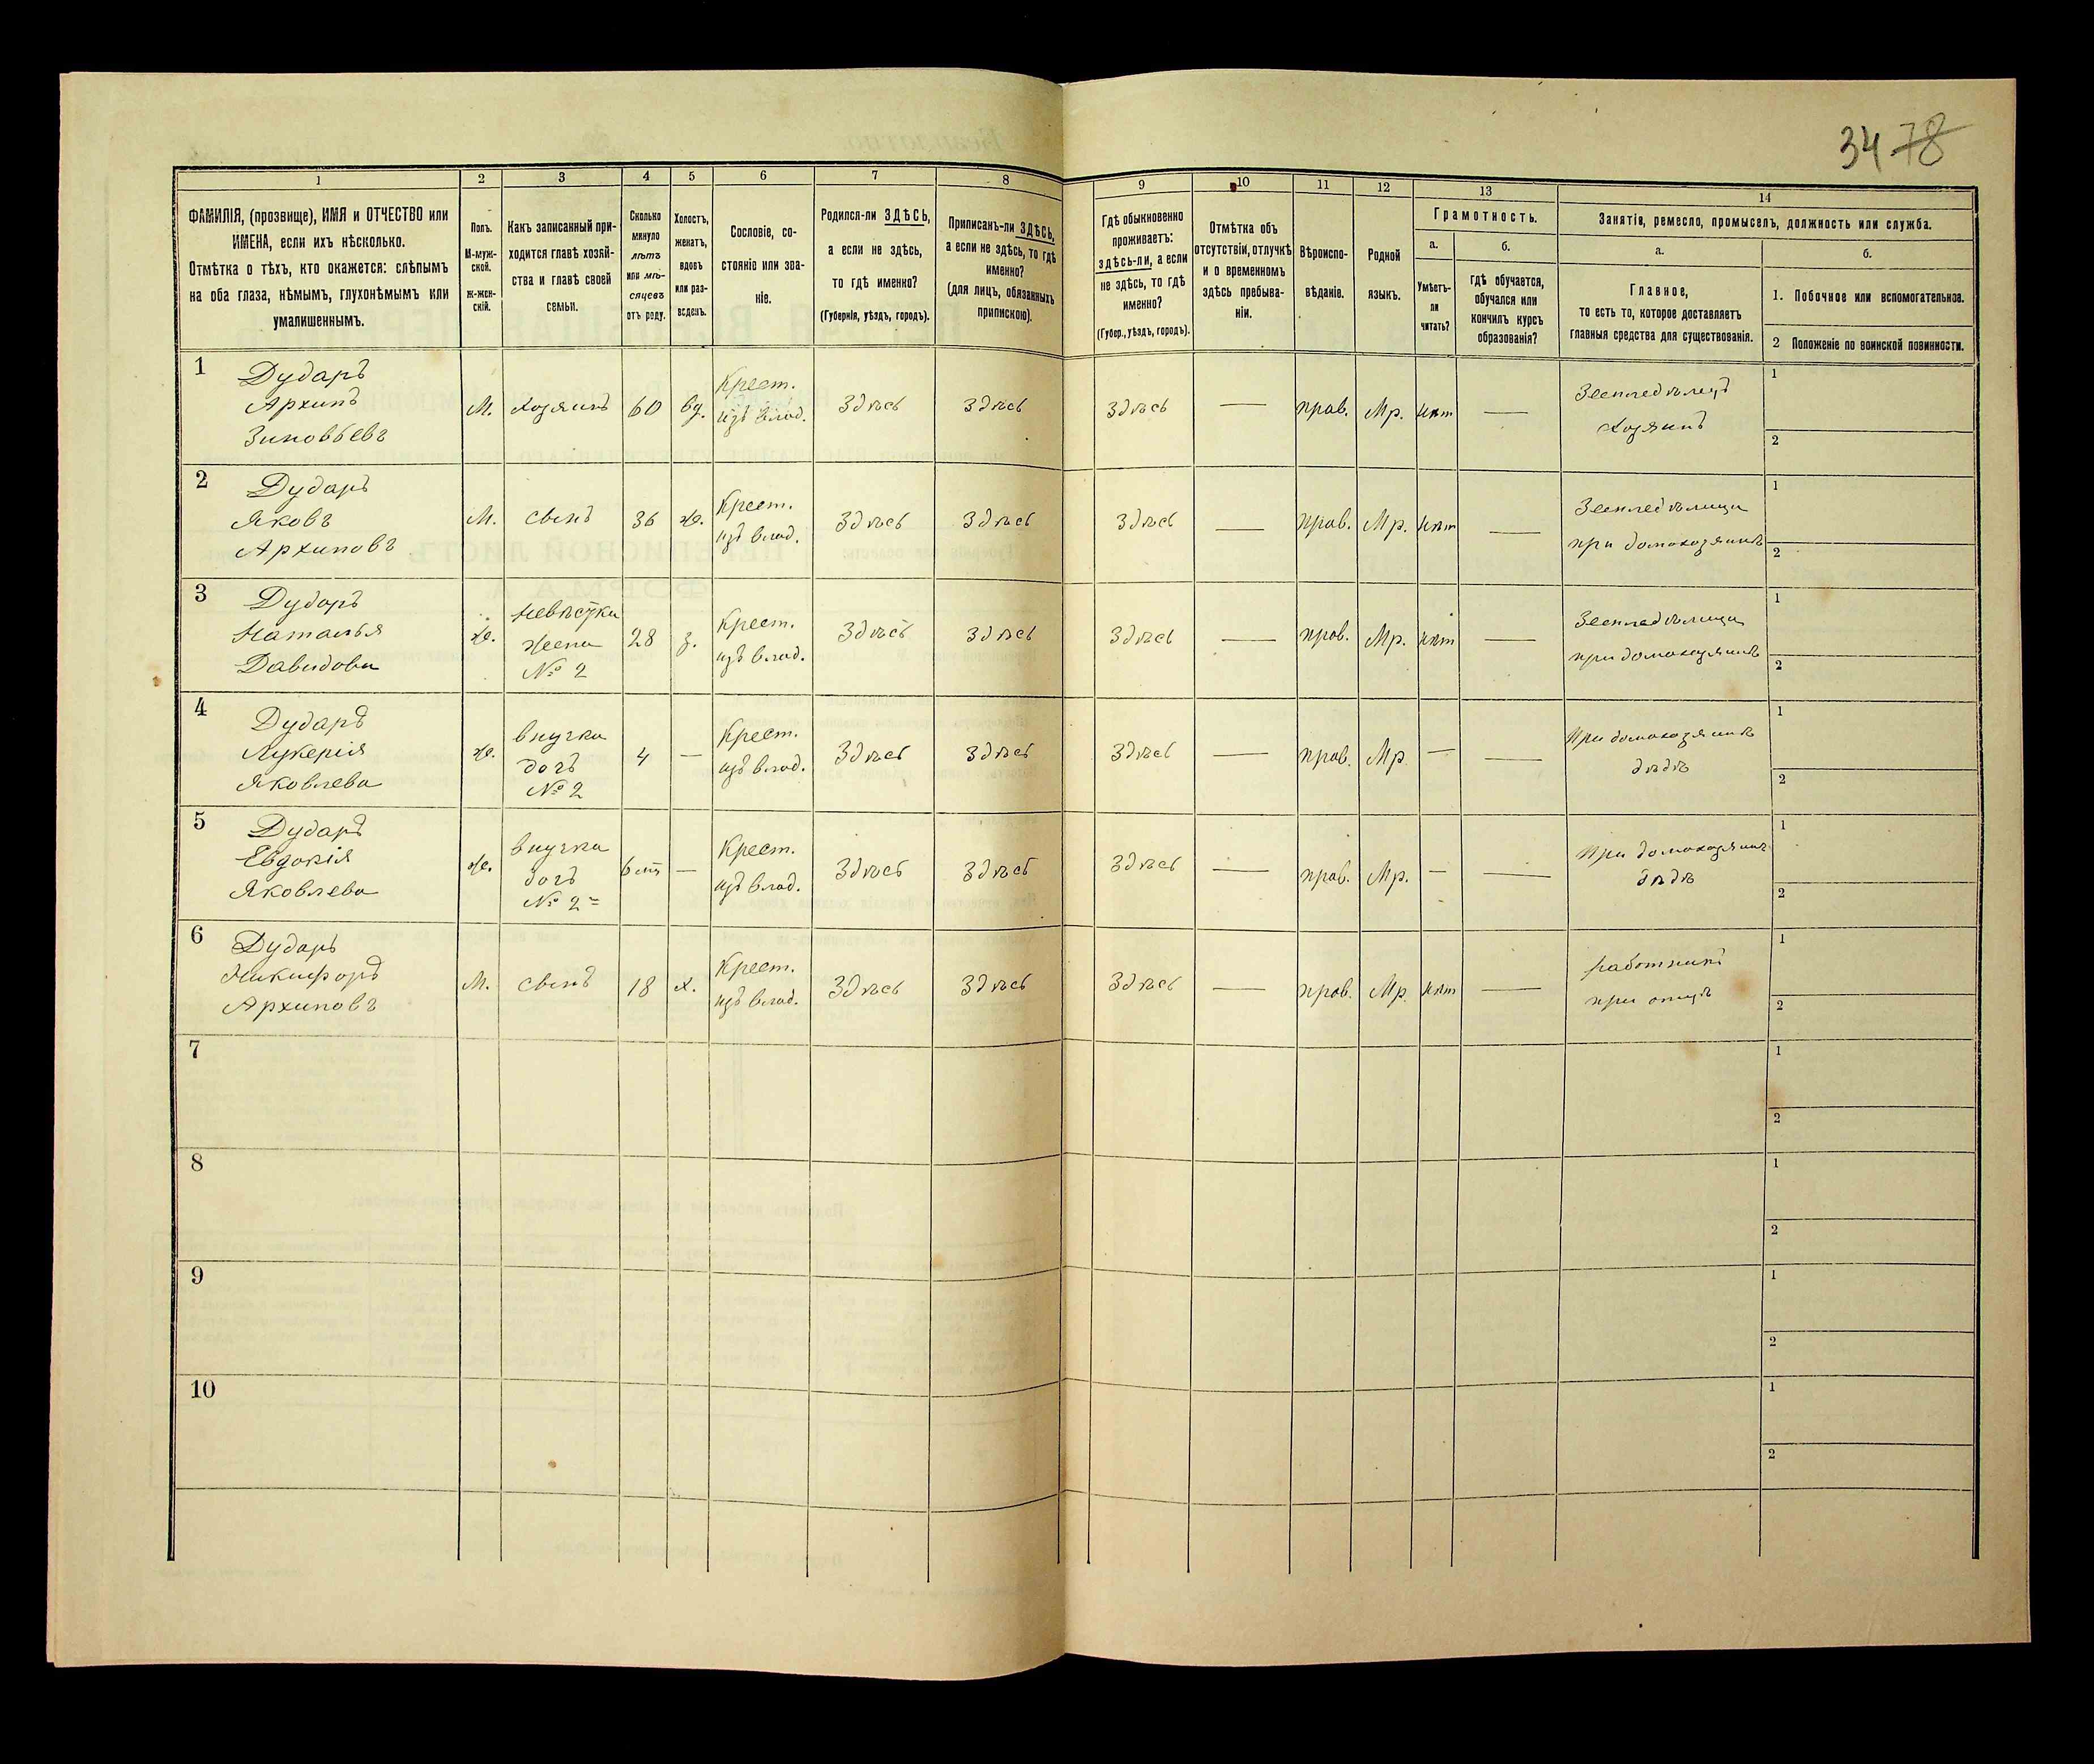 34 78
1
2
3
4
5
6
7
8
9
10
11
12
13
14
ФАМИЛІЯ, (прозвище), ИМЯ и ОТЧЕСТВО или
ИМЕНА, если ихъ нѣсколько.
Отмѣтка о тѣхъ, кто окажется: слѣпымъ
на оба глаза, нѣмымъ, глухонѣмымъ или
умалишеннымъ.
Полъ.
М-муж-
ской.
Ж-жен-
скій.
Какъ записанный при-
ходится главѣ хозяй-
ства и главѣ своей
семьи.
Сколько
минуло
лѣтъ
или мѣ-
сяцевъ
отъ роду.
Холостъ,
женатъ,
вдовъ
или раз-
веденъ.
Сословіе, со-
стояніе или зва-
ніе.
Родился-ли ЗДѢСЬ,
а если не здѣсь,
то гдѣ именно?
(Губернія, уѣздъ, городъ).
Приписанъ-ли ЗДѢСЬ,
а если не здѣсь, то гдѣ
именно?
(для лицъ, обязанныхъ
припискою).
Гдѣ обыкновенно
проживаетъ:
здѣсь-ли, а если
не здѣсь, то гдѣ
именно?
(Губер., уѣздъ, городъ).
Отмѣтка объ
отсутствіи, отлучкѣ
и о временномъ
здѣсь пребыва-
ніи.
Вѣроиспо-
вѣданіе.
Родной
языкъ.
Грамотность.
а.
Умѣетъ-
ли
читать?
б.
гдѣ обучается,
обучался или
кончилъ курсъ
образованія?
Занятіе, ремесло, промыселъ, должность или служба.
а.
Главное,
то есть то, которое доставляетъ
главныя средства для существованія.
б.
1. Побочное или вспомогательное.
2 Положеніе по воинской повинности.
1
Дударь
Архипъ
Зиновьевъ
М.
Хозяинъ
60
вд.
Крест.
изъ влад.
Здѣсь
Здѣсь
Здѣсь
—
прав.
Мр.
нѣт
—
Земледѣлецъ
Хозяинъ
1
2
2
Дударь
Яковъ
Архиповъ
М.
сынъ
36
ж.
Крест.
изъ влад.
Здѣсь
Здѣсь
Здѣсь
—
прав.
Мр.
нѣт
—
при домохозяинѣ
1
2
3
Дударь
Наталья
Давидова
ж.
невѣстка
жена
№ 2
28
з.
Крест.
изъ влад.
Здѣсь
Здѣсь
Здѣсь
—
прав.
Мр.
нѣт
—
при домохозяинѣ
1
2
4
Дударь
Лукерія
Яковлева
ж.
внучка
дочь
№ 2
4
—
Крест.
изъ влад.
Здѣсь
Здѣсь
Здѣсь
—
прав.
Мр.
—
—
При домохозяинѣ
дѣдѣ
1
2
5
Дударь
Евдокія
Яковлева
ж.
внучка
дочь
№ 2
—
Крест.
изъ влад.
Здѣсь
Здѣсь
Здѣсь
—
прав.
Мр.
—
—
При домохозяинѣ
дѣдѣ
1
2
6
Дударь
Никифоръ
Архиповъ
М.
сынъ
18
х.
Крест.
изъ влад.
Здѣсь
Здѣсь
Здѣсь
—
прав.
Мр.
нѣт
—
работникъ
при отцѣ
1
2
7
1
2
8
1
2
9
1
2
10
1
2